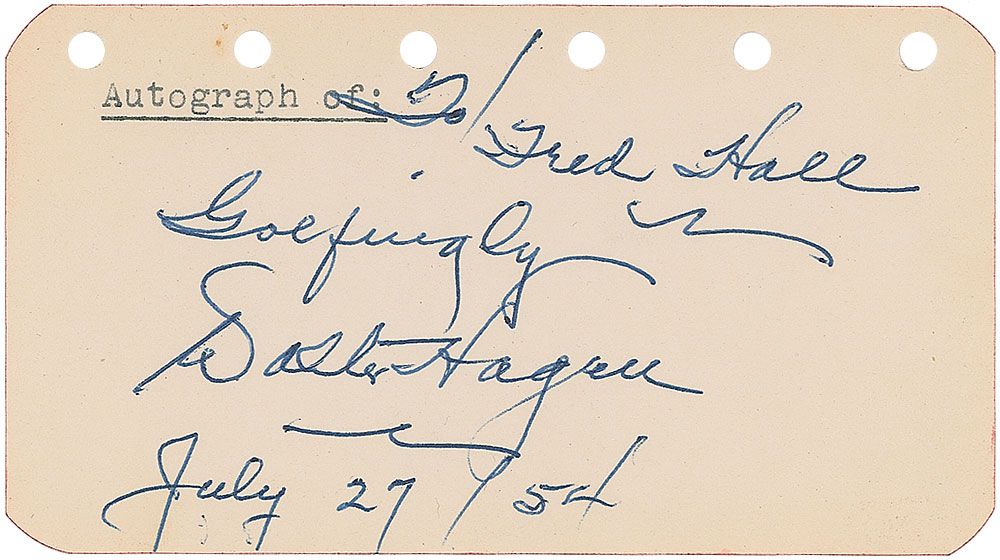 Autograph of: To/
Fred Hall
Golfingly
Walter Hagen
July 27/54